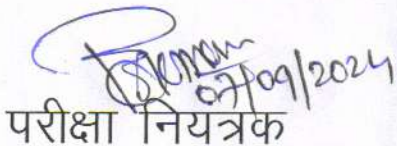 07/09/2024
परीक्षा नियंत्रक